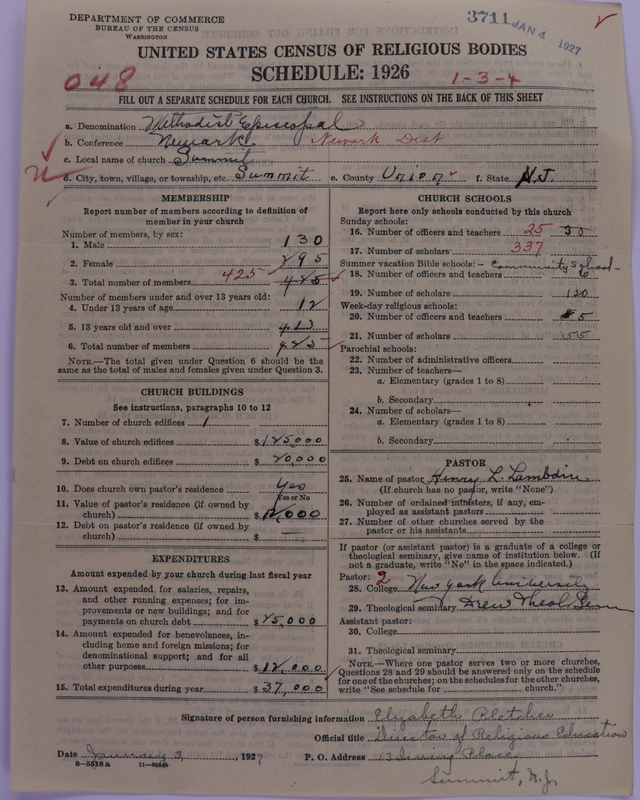 DEPARTMENT OF COMMERCE
BUREAU OF THE CENSUS
WASHINGTON
3711 JAN 4 1927
UNITED STATES CENSUS OF RELIGIOUS BODIES
SCHEDULE: 1926
048
1-3-4
FILL OUT A SEPARATE SCHEDULE FOR EACH CHURCH. SEE INSTRUCTIONS ON THE BACK OF THIS SHEET
a. Denomination Methodist Episcopal
b. Conference Newark Newark Dist
c. Local name of church Summit
d. City, town, village, or township, etc. Summit e. County Union f. State N.J.
MEMBERSHIP
Report number of members according to definition of
member in your church
Number of members, by sex:
1. Male 130
2. Female 295
3. Total number of members 425
Number of members under and over 13 years old:
4. Under 13 years of age 12
5. 13 years old and over 413
6. Total number of members 425
NOTE.—The total given under Question 6 should be
same as the total of males and females given under Question 3.
CHURCH BUILDINGS
See instructions, paragraphs 10 to 12
7. Number of church edifices 1
8. Value of church edifices $
9. Debt on church edifices $
10. Does church own pastor's residence Yes
Yes or No
11. Value of pastor's residence (if owned by
church) $
12. Debt on pastor's residence (if owned by
church) $ —
EXPENDITURES
Amount expended by your church during last fiscal year
13. Amount expended for salaries, repairs,
and other running expenses; for im-
provements or new buildings; and for
payments on church debt $25,000
14. Amount expended for benevolences, in-
cluding home and foreign missions; for
denominational support; and for all
other purposes $12,000
15. Total expenditures during year $37,000
CHURCH SCHOOLS
Report here only schools conducted by this church
Sunday schools:
16. Number of officers and teachers 25
17. Number of scholars 337
Summer vacation Bible schools: - Community School -
18. Number of officers and teachers 6
19. Number of scholars 120
Week-day religious schools:
20. Number of officers and teachers 5
21. Number of scholars 55
Parochial schools:
22. Number of administrative officers
23. Number of teachers—
a. Elementary (grades 1 to 8)
b. Secondary
24. Number of scholars—
a. Elementary (grades 1 to 8)
b. Secondary
PASTOR
25. Name of pastor Henry L. Lambdin
(If church has no pastor, write "None")
26. Number of ordained ministers, if any, em-
ployed as assistant pastors
27. Number of other churches served by the
pastor or his assistants
If pastor (or assistant pastor) is a graduate of a college or
theological seminary, give name of institution below. (If
not a graduate, write "No" in the space indicated.)
Pastor: 2
28. College New York University
29. Theological seminary Drew Theol. Sem
Assistant pastor:
30. College
31. Theological seminary
NOTE.—Where one pastor serves two or more churches,
Questions 28 and 29 should be answered only on the schedule
for one of the churches; on the schedules for the other churches,
write "See schedule for church."
Signature of person furnishing information Elizabeth Pletcher
Official title Director of Religious Education
Date January 3, 1927 P. O. Address 13 Irving Place
8—5518a
Summit, N.J.